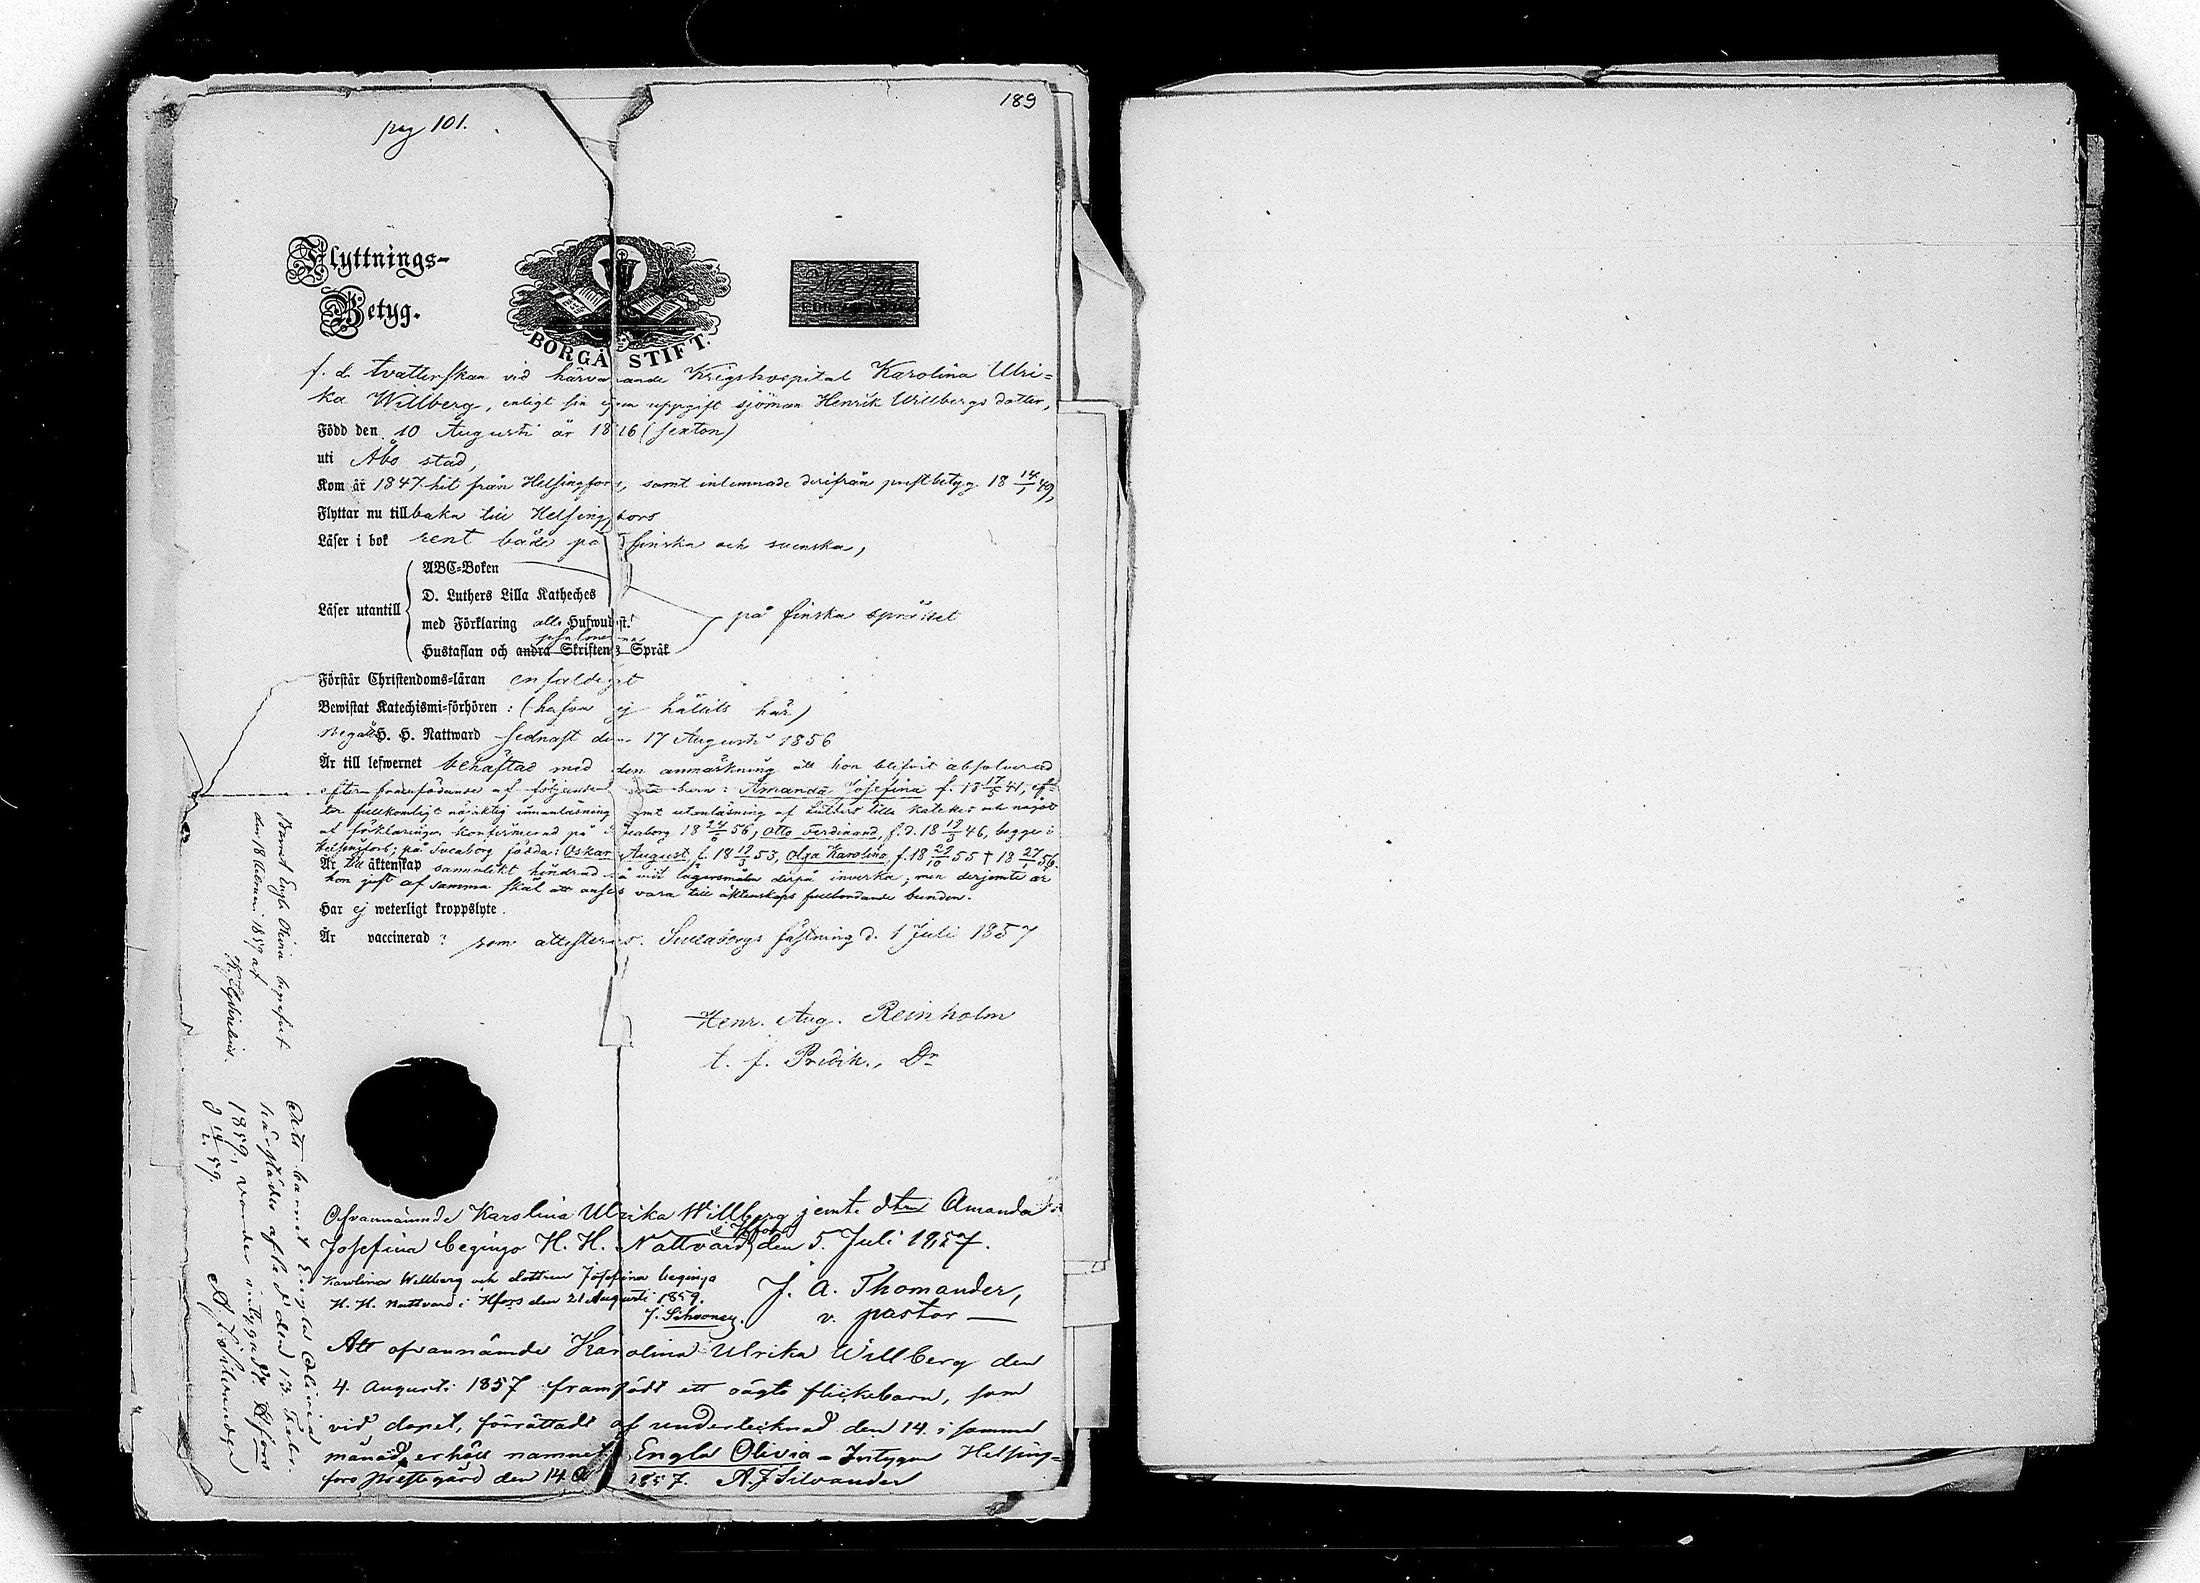 189
pag 101.
Flyttnings-
Betyg.
BORGÅ STIFT.
f. d. tvätterskan vid härvarande Krigshospital Karolina Ulri=
ka Willberg, enligt sin egen uppgift sjöman Henrik Willbergs dotter,
Född den 10 Augusti år 1816 (sexton)
uti Åbo stad,
Kom år 1847 hit från Helsingfors, samt inlemnade derifrån prestbetyg 18 14/1 49,
Flyttar nu till baka till Helsingfors
Läser i bok rent både på finska och svenska,
ABC-Boken
D. Luthers Lilla Katheches
Läser utantill
med Förklaring alla Hufwudst.
psalmerna
Hustaflan och andra Skriftens Språk
på finska språket
Förstår Christendoms-läran enfaldigt
Bewistat Katechismi-förhören : (hafva ej hållits här)
Begått H. H. Nattward sednast den 17 Augusti 1856
Är till lefwernet behäftad med den anmärkning att hon blifvit absolverad
efter framfödande af följande barn : Amanda Josefina f. 18 17/5 41, ef=
ter fullkomligt nöjaktig innanläsning samt utanläsning af Luthers lilla kateches och något
af förklaringen konfirmerad på Sveaborg 18 24/6 56, Otto Ferdinand, f. d. 18 19/3 46, begge i
Helsingfors; på Sveaborg födda : Oskar August f. 18 19/3 53, Olga Karolina, f. 18 29/10 55 † 18 27/1 56.
Är till äktenskap sammalikt hindrad så vidt lägersmålen derpå inverka; men derjemte är
hon just af samma skäl att anses vara till äktenskaps fullbordande bunden.
Har ej weterligt kroppslyte.
Är vaccinerad ; som attesteras. Sveaborgs fästning d. 1 Juli 1857
Henr. Aug. Reinholm
t. f. Predik., Dr
Barnet Engla Olivia begrafvet
den 18 1859 af
Att barnet Engla Olivia
härstädes afled den 13 Febr.
1859, varder intygadt. Hfors
d 14/2 59. A J Silvander
Ofvannämnde Karolina Ulrika Willberg jemte dtrn Amanda
Josefina begingo H. H. Nattvard i Hfors den 5. Juli 1857.
J. A. Thomander,
v. pastor
Karolina Willberg och dottren Josefina begingo
H. H. Nattvard i Hfors den 21 Augusti 1859.
J. Schroney.
Att ofvannämnde Karolina Ulrika Willberg den
4. Augusti 1857 framfödt ett oägta flickebarn, som
vid dopet, förrättadt af undertecknad den 14. i samma
månad, erhöll namnet Engla Olivia - Intygar Helsing=
fors Prestegård den 14 1857. A J Silvander